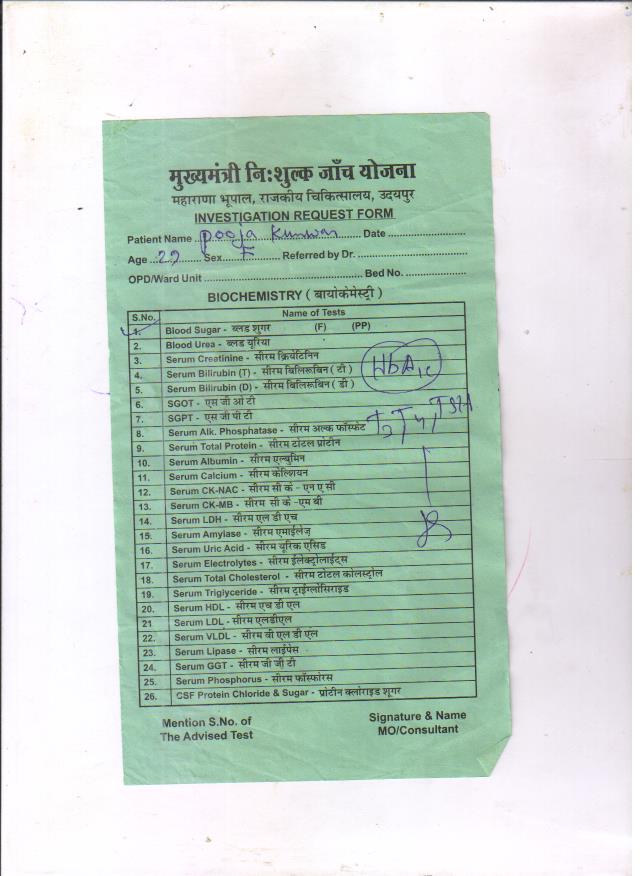 मुख्यमंत्री निःशुल्क जाँच योजना
महाराणा भूपाल, राजकीय चिकित्सालय, उदयपुर
INVESTIGATION REQUEST FORM
Patient Name Pooja Kunwar Date
Age 29 Sex F Referred by Dr.
OPD/Ward Unit Bed No.
BIOCHEMISTRY ( बायोकेमेस्ट्री )
S.No. Name of Tests
1. Blood Sugar - ब्लड शुगर (F) (PP)
2. Blood Urea - ब्लड यूरिया
3. Serum Creatinine - सीरम क्रियेटिनिन
4. Serum Bilirubin (T) - सीरम बिलिरूबिन ( टी ) HbA1c
5. Serum Bilirubin (D) - सीरम बिलिरूबिन ( डी )
6. SGOT - एस जी ओ टी
7. SGPT - एस जी पी टी
8. Serum Alk. Phosphatase - सीरम अल्क फॉस्फेट T3 T4, TSH
9. Serum Total Protein - सीरम टोटल प्रोटीन
10. Serum Albumin - सीरम एल्बुमिन
11. Serum Calcium - सीरम केल्शियन
12. Serum CK-NAC - सीरम सी के - एन ए सी
13. Serum CK-MB - सीरम सी के -एम बी
14. Serum LDH - सीरम एल डी एच
15. Serum Amylase - सीरम एमाईलेज़
16. Serum Uric Acid - सीरम यूरिक एसिड
17. Serum Electrolytes - सीरम ईलेक्ट्रोलाईट्स
18. Serum Total Cholesterol - सीरम टोटल कोलस्ट्रोल
19. Serum Triglyceride - सीरम ट्राईग्लोसिराइड
20. Serum HDL - सीरम एच डी एल
21 Serum LDL - सीरम एलडीएल
22. Serum VLDL - सीरम वी एल डी एल
23. Serum Lipase - सीरम लाईपेस
24. Serum GGT - सीरम जी जी टी
25. Serum Phosphorus - सीरम फॉस्फोरस
26. CSF Protein Chloride & Sugar - प्रोटीन क्लोराइड शूगर
Mention S.No. of
The Advised Test
Signature & Name
MO/Consultant